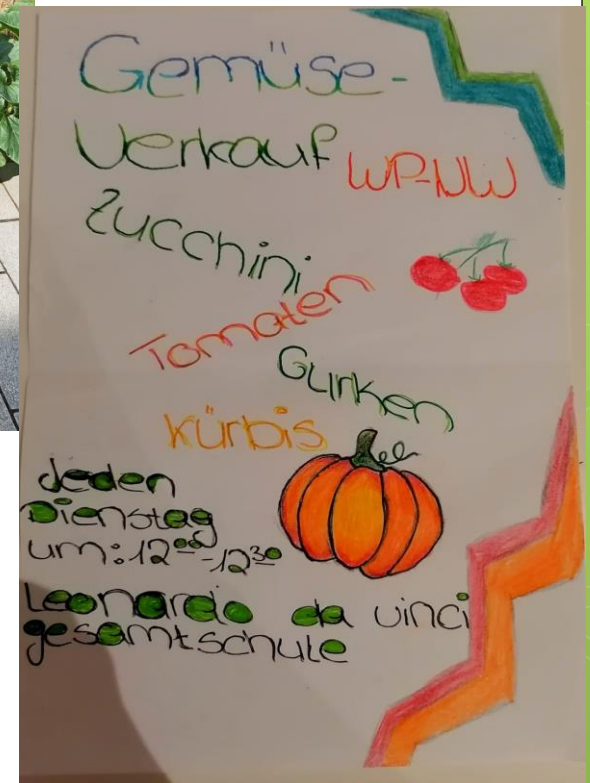 Gemüse-
Verkauf WP-NW
Zucchini
Tomaten
Gurken
Kürbis
Jeden
Dienstag
um: 12⁰⁰-12³⁰
Leonardo da vinci
gesamtschule